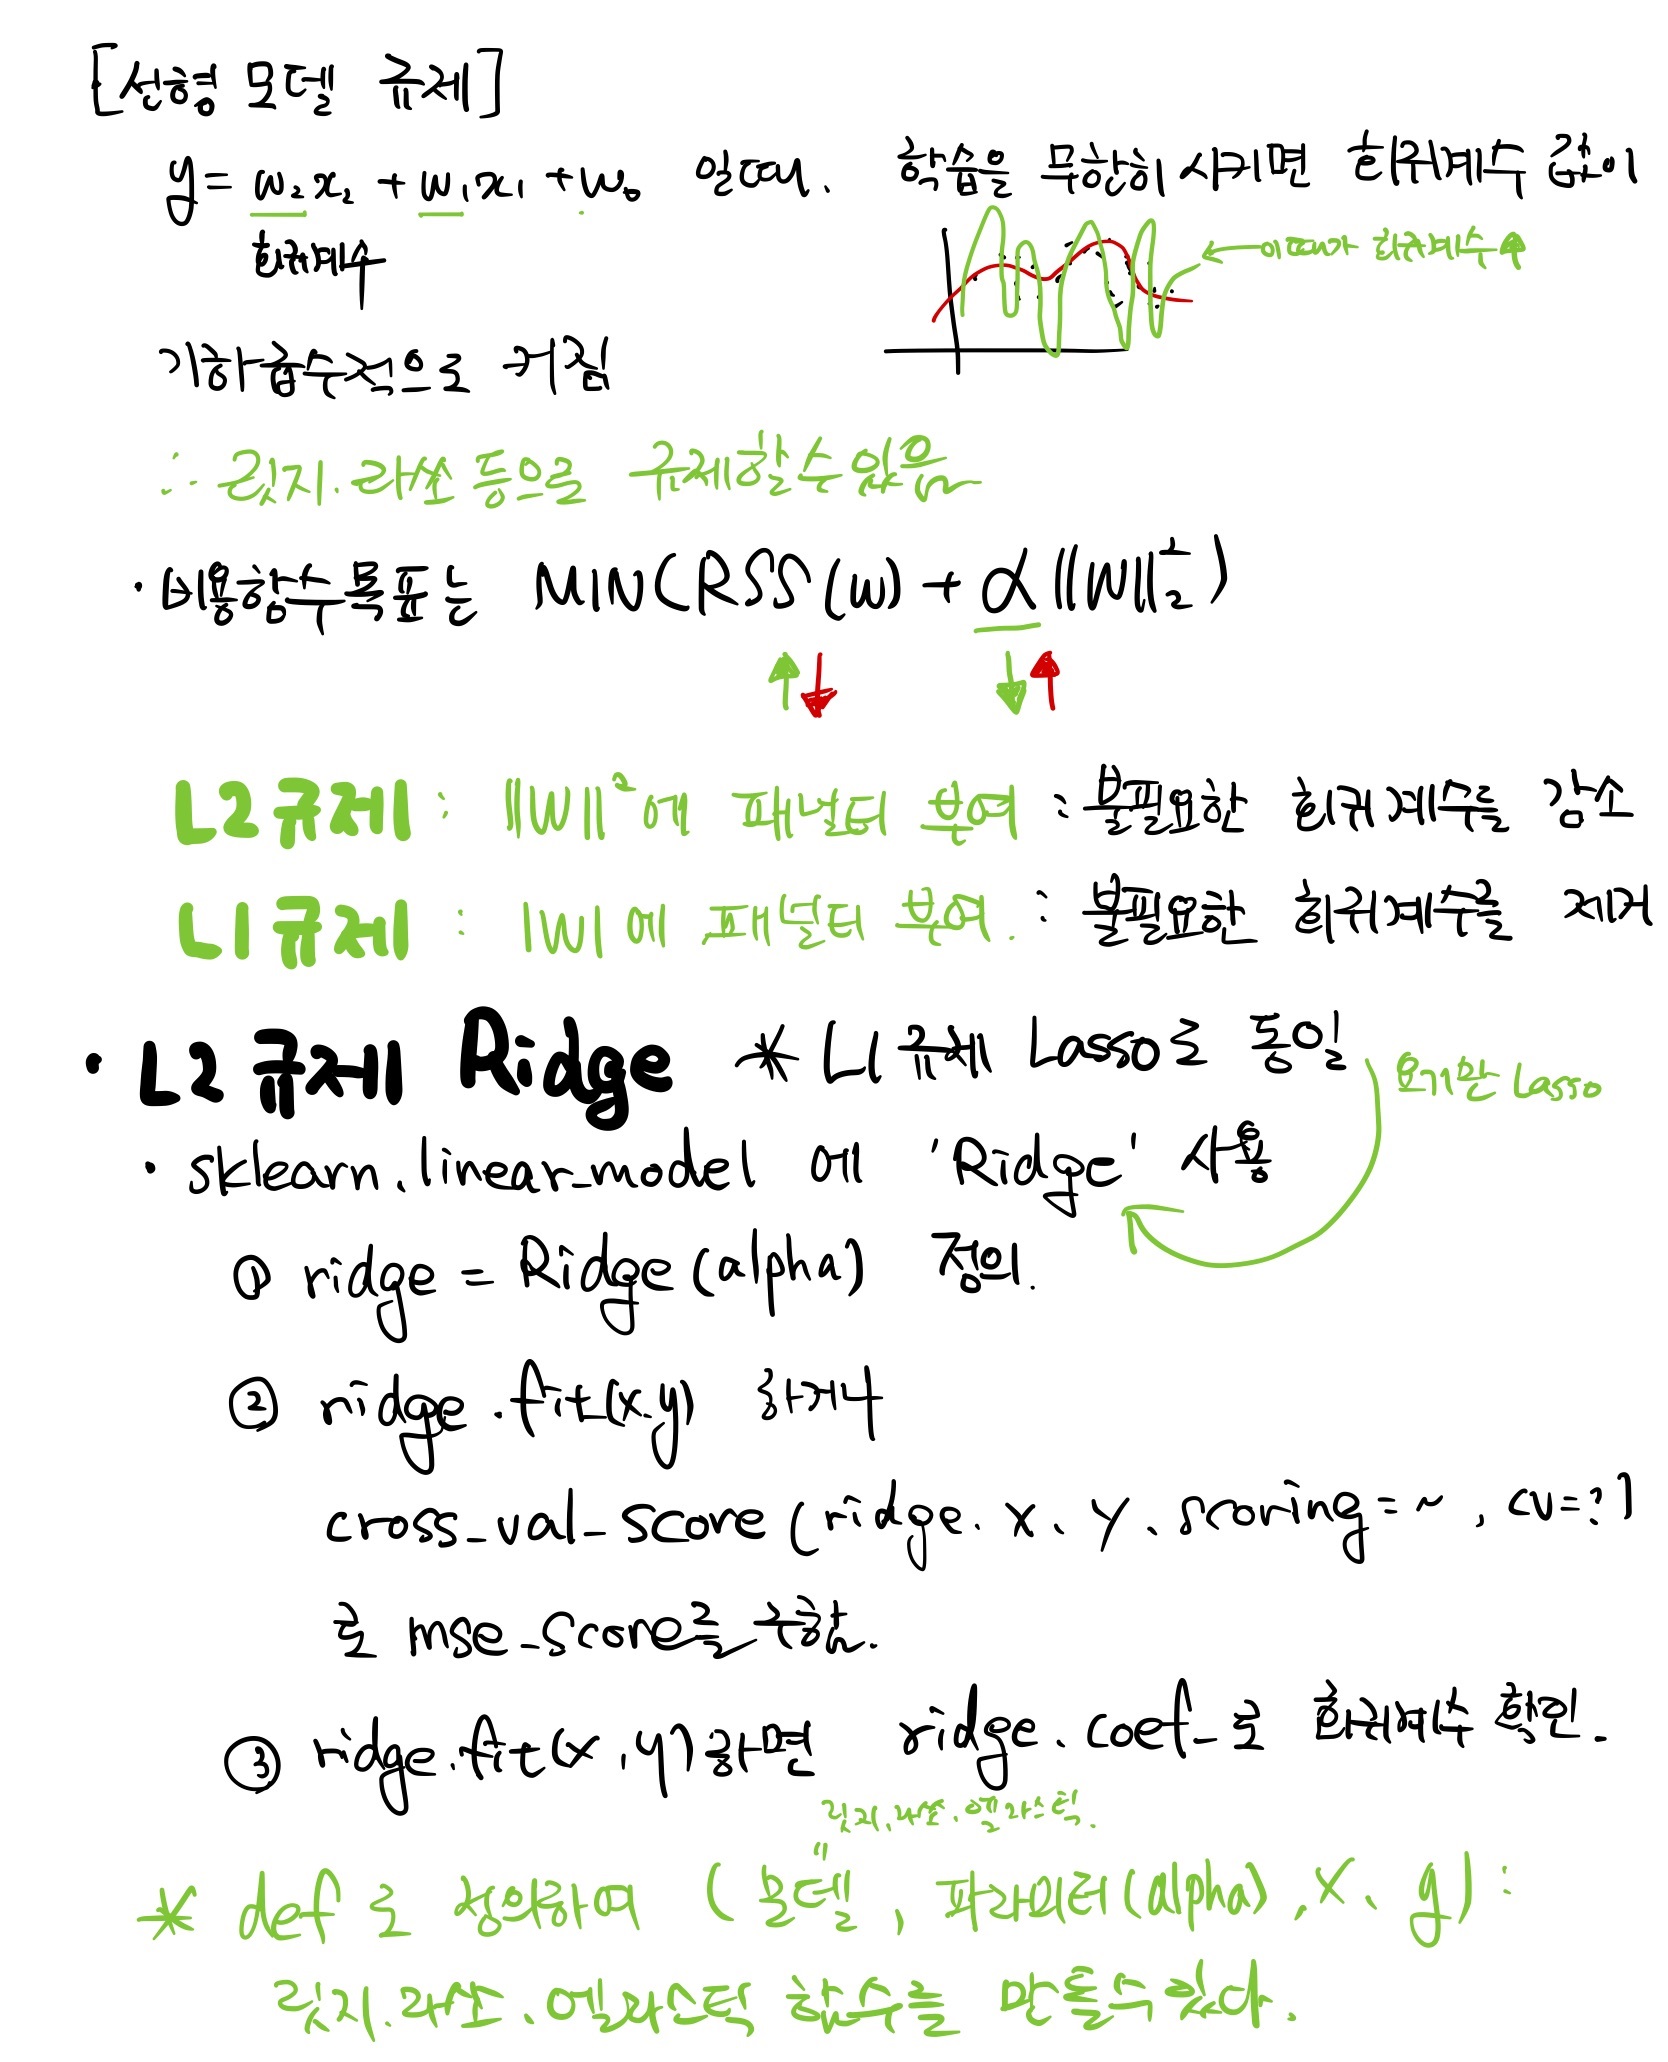 [선형 모델 규제]
y = w₂x₂ + w₁x₁ + w₀ 일때, 학습을 무한히 시키면 회귀계수 값이
회귀계수
← 이때가 회귀계수↑
기하급수적으로 커짐
∴ 릿지, 라쏘 등으로 규제할수 있음
· 비용함수 목표는 MIN(RSS(w) + α||W||₂²)
↑↓ ↓↑
L2규제 : ||W||²에 패널티 부여 : 불필요한 회귀계수를 감소
L1규제 : |W|에 패널티 부여. : 불필요한 회귀계수를 제거
· L2 규제 Ridge * L1 규제 Lasso로 동일
요기만 Lasso
· sklearn.linear_model 에 'Ridge' 사용
① ridge = Ridge(alpha) 정의.
② ridge.fit(x,y) 하거나
cross_val_score(ridge, x, y, scoring=~, cv=?)
로 mse_score를 구함.
③ ridge.fit(x,y)하면 ridge.coef_로 회귀계수 확인.
릿지, 라쏘, 엘라스틱.
"
* def 로 정의하여 (모델, 파라미터(alpha), X, y):
릿지, 라쏘, 엘라스틱 함수를 만들수있다.